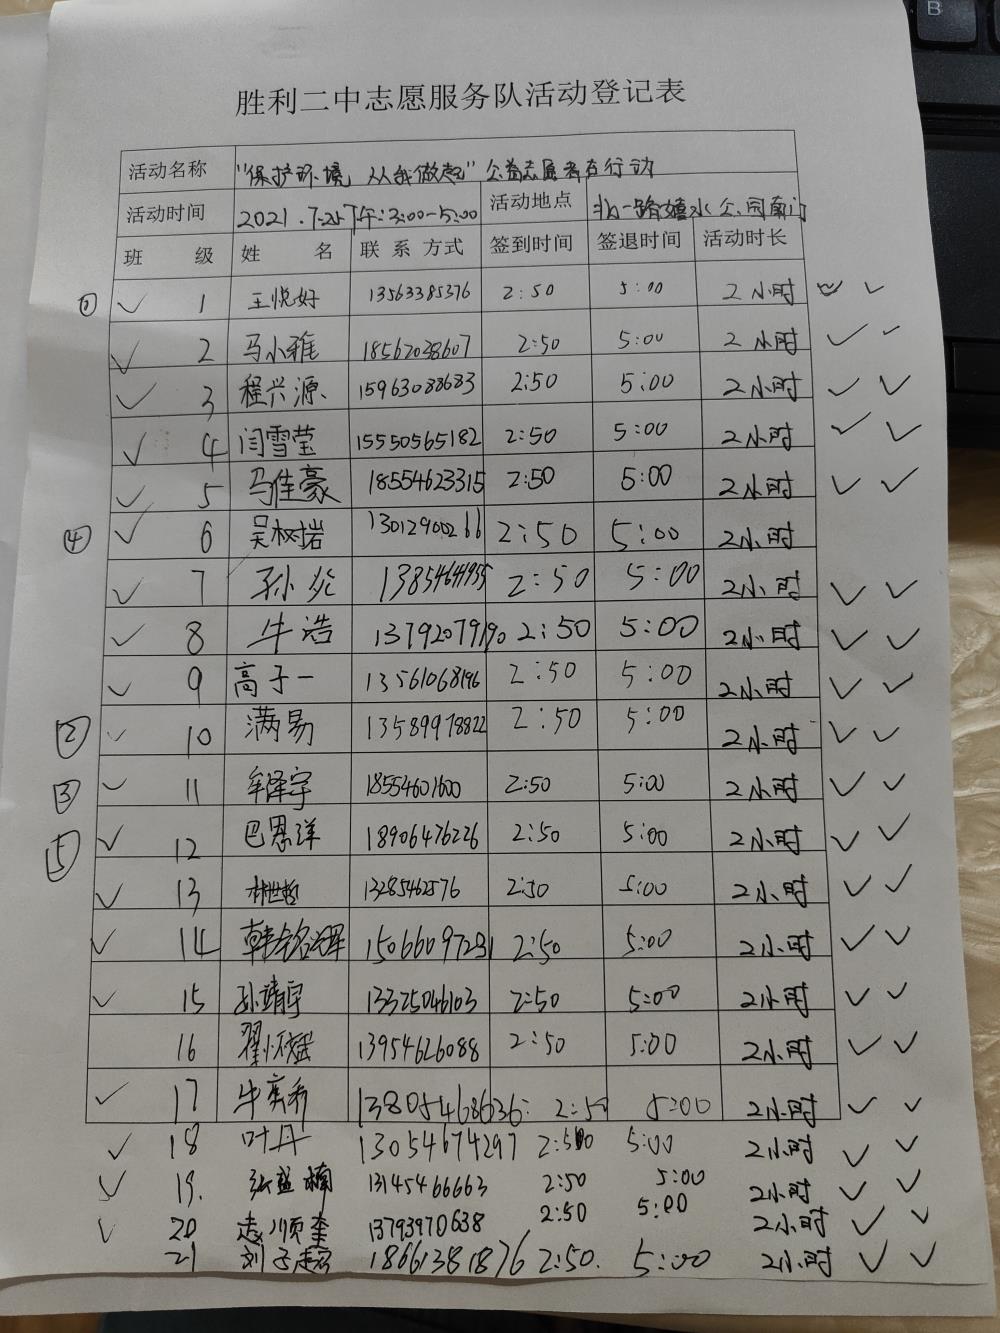 B
胜利二中志愿服务队活动登记表
活动名称 "保护环境,从我做起"公益志愿者在行动
活动时间 2021.7.25下午:3:00-5:00 活动地点 北一路嬉水公园南门
班 级 姓 名 联系方式 签到时间 签退时间 活动时长
① ✓ 1 王悦好 13563385376 2:50 5:00 2小时 ✓ ✓
✓ 2 马小雅 18562038607 2:50 5:00 2小时 ✓ ✓
✓ 3 程兴源 15963088683 2:50 5:00 2小时 ✓ ✓
✓ 4 闫雪莹 15550565182 2:50 5:00 2小时 ✓ ✓
✓ 5 马佳豪 18554623315 2:50 5:00 2小时 ✓ ✓
④ ✓ 6 吴树岩 13012900266 2:50 5:00 2小时
✓ 7 孙 2:50 5:00 2小时 ✓ ✓
✓ 8 牛浩 13792079190 2:50 5:00 2小时 ✓ ✓
✓ 9 高子一 13561068196 2:50 5:00 2小时 ✓ ✓
② ✓ 10 满易 13589978822 2:50 5:00 2小时 ✓ ✓
③ ✓ 11 牟泽宇 18554601600 2:50 5:00 2小时 ✓ ✓
⑤ ✓ 12 巴恩洋 18906476226 2:50 5:00 2小时 ✓ ✓
✓ 13 林世哲 13285462576 2:50 5:00 2小时 ✓ ✓
✓ 14 韩铭辉 2:50 5:00 2小时 ✓ ✓
✓ 15 孙靖宇 13325046103 2:50 5:00 2小时 ✓ ✓
16 翟 13954626088 2:50 5:00 2小时 ✓ ✓
✓ 17 牛奕希 13805468636: 2:50 5:00 2小时 ✓ ✓
✓ 18 叶丹 13054674297 2:50 5:00 2小时 ✓ ✓
✓ 19. 张益楠 13145466663 2:50 5:00 2小时 ✓ ✓
✓ 20 顺奎 13793970638 2:50 5:00 2小时 ✓ ✓
21 刘子 18661381876 2:50. 5:00 2小时 ✓ ✓